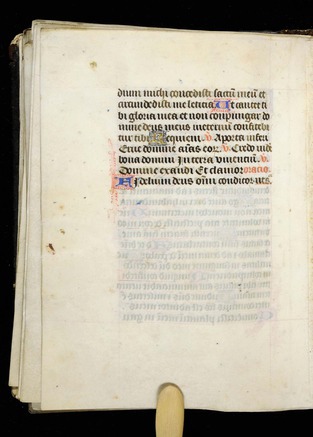 dium michi concidisti saccū meū et
circūdedisti me leticia Ut cantet ti
bi gloria mea et non conpungar do
mine deus meus ineternū confiteb
tur tibi Requiem V. A porta inferi
Erue domine aīas eor. V. Credo vid
bona domini In terra viventiū. V.
Domine exaudi Et clamor oratio
Fidelium deus oīm conditor ut s.